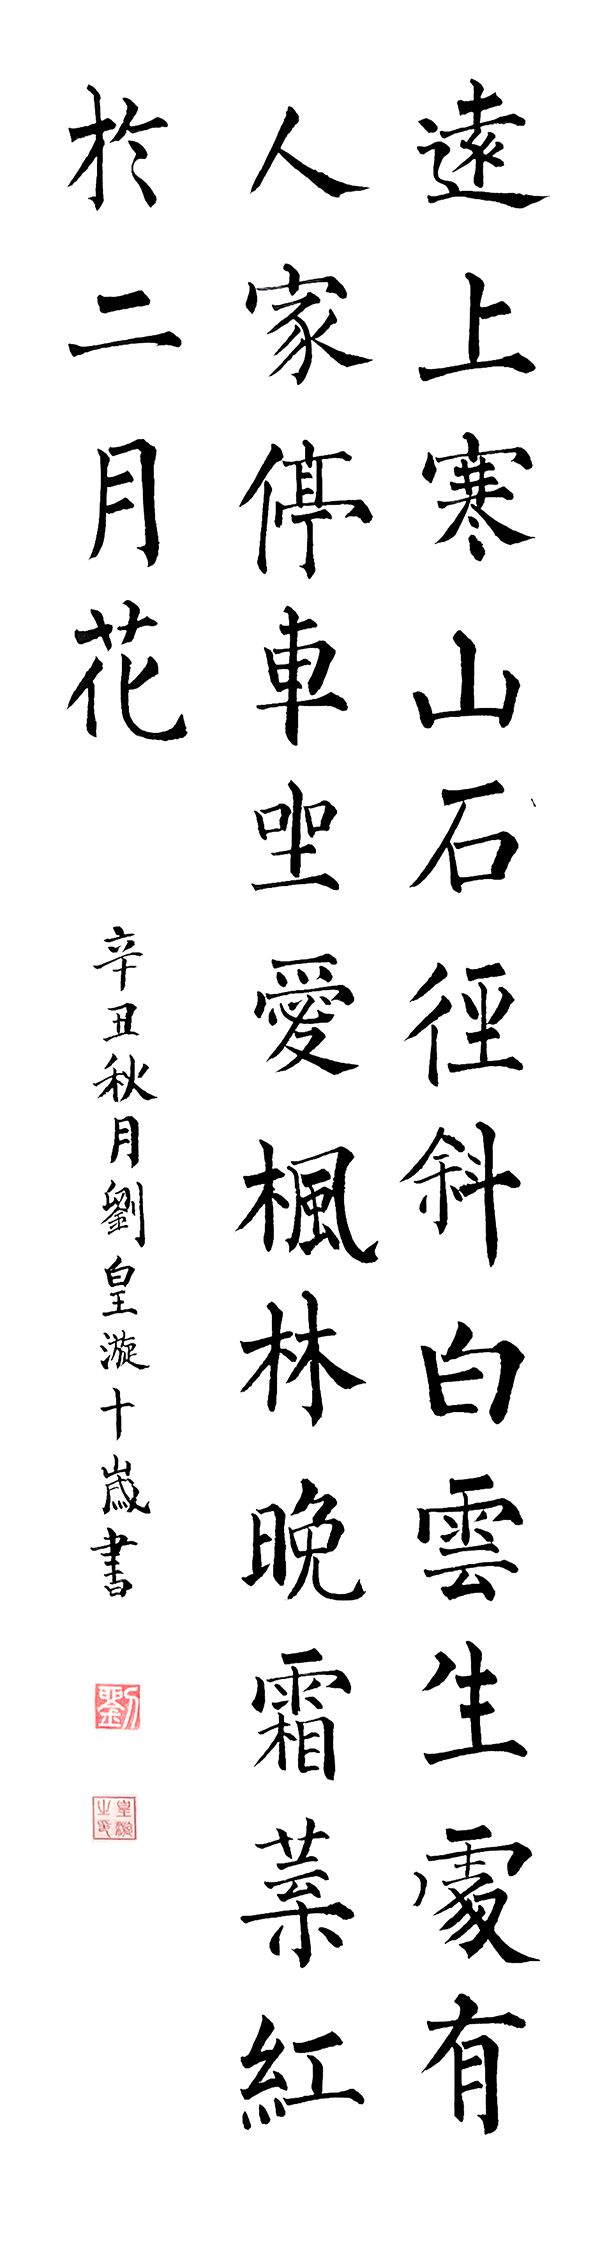 遠上寒山石徑斜白雲生處有
人家停車坐愛楓林晚霜葉紅
於二月花
辛丑秋月劉皇漩十歲書
劉
皇漩之印